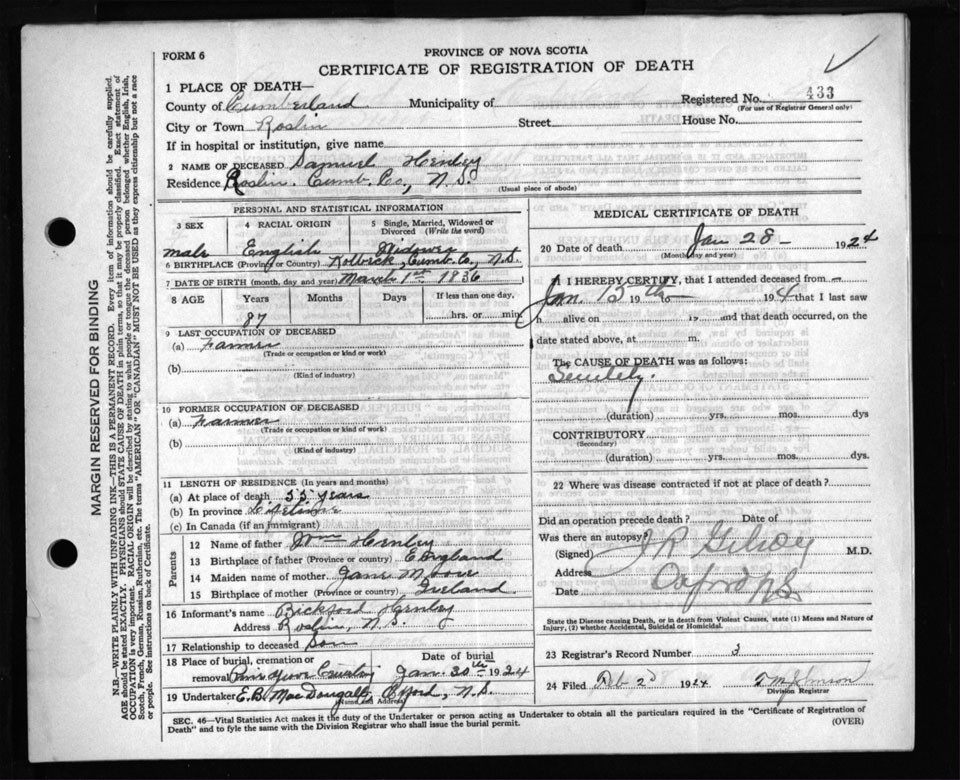 FORM 6
PROVINCE OF NOVA SCOTIA
CERTIFICATE OF REGISTRATION OF DEATH
1 PLACE OF DEATH—
County of Cumberland Municipality of Registered No. 433
(For use of Registrar General only)
City or Town Roslin Street House No.
If in hospital or institution, give name
2 NAME OF DECEASED Samuel Henley
Residence Roslin, Cumb. Co, N.S.
(Usual place of abode)
PERSONAL AND STATISTICAL INFORMATION
3 SEX 4 RACIAL ORIGIN 5 Single, Married, Widowed or Divorced (Write the word)
male English Widower
6 BIRTHPLACE (Province or Country) Cumb. Co, N.S.
7 DATE OF BIRTH (month, day and year) March 1st 1836
8 AGE Years Months Days If less than one day,
87 hrs. or min.
9 LAST OCCUPATION OF DECEASED
(a) Farmer
(Trade or occupation or kind or work)
(b)
(Kind of industry)
10 FORMER OCCUPATION OF DECEASED
(a) Farmer
(Trade or occupation or kind of work)
(b)
(Kind of industry)
11 LENGTH OF RESIDENCE (In years and months)
(a) At place of death 55 years
(b) In province Lifetime
(c) In Canada (if an immigrant)
Parents
12 Name of father Wm Henley
13 Birthplace of father (Province or country) England
14 Maiden name of mother Jane Moore
15 Birthplace of mother (Province or country) Ireland
16 Informant's name Bickford Henley
Address Roslin, N.S.
17 Relationship to deceased Son
18 Place of burial, cremation or removal Date of burial
Jan. 30th 1924
19 Undertaker E.B. MacDougall, Oxford, N.S.
(Name and Address)
MEDICAL CERTIFICATE OF DEATH
20 Date of death Jan 28 - 1924
(Month, day and year)
21 I HEREBY CERTIFY, that I attended deceased from —
Jan. 15th 19 to 1924 that I last saw
h alive on 19 and that death occurred, on the
date stated above, at m.
The CAUSE OF DEATH was as follows:
Senility.
(duration) yrs. mos. dys
CONTRIBUTORY
(Secondary)
(duration) yrs. mos. dys.
22 Where was disease contracted if not at place of death?
Did an operation precede death? Date of
Was there an autopsy?
(Signed) J R Gilroy M.D.
Address Oxford N.S.
Date
State the Disease causing Death, or in death from Violent Causes, state (1) Means and Nature of Injury, (2) whether Accidental, Suicidal or Homicidal.
23 Registrar's Record Number 3
24 Filed Feb 2d 1924 Johnson
Division Registrar
SEC. 46—Vital Statistics Act makes it the duty of the Undertaker or person acting as Undertaker to obtain all the particulars required in the "Certificate of Registration of
Death" and to fyle the same with the Division Registrar who shall issue the burial permit.
(OVER)
MARGIN RESERVED FOR BINDING
N.B.—WRITE PLAINLY WITH UNFADING INK—THIS IS A PERMANENT RECORD. Every item of information should be carefully supplied.
AGE should be stated EXACTLY. PHYSICIANS should STATE CAUSE OF DEATH in plain terms, so that it may be properly classified. Exact statement of
OCCUPATION is very important. RACIAL ORIGIN will be described by stating to what people or tongue the deceased person belonged whether English, Irish,
Scotch, French, German, Russian, Ruthenian, etc. The terms "AMERICAN" OR "CANADIAN" MUST NOT BE USED as they express citizenship but not a race
or people. See instructions on back of Certificate.